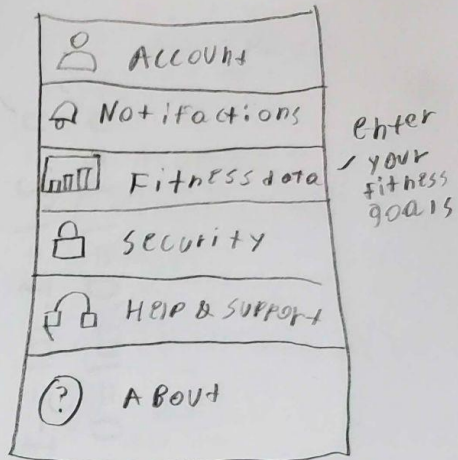 Account
Notifactions
Fitness data
enter
your
fitness
goals
security
Help & support
?
About